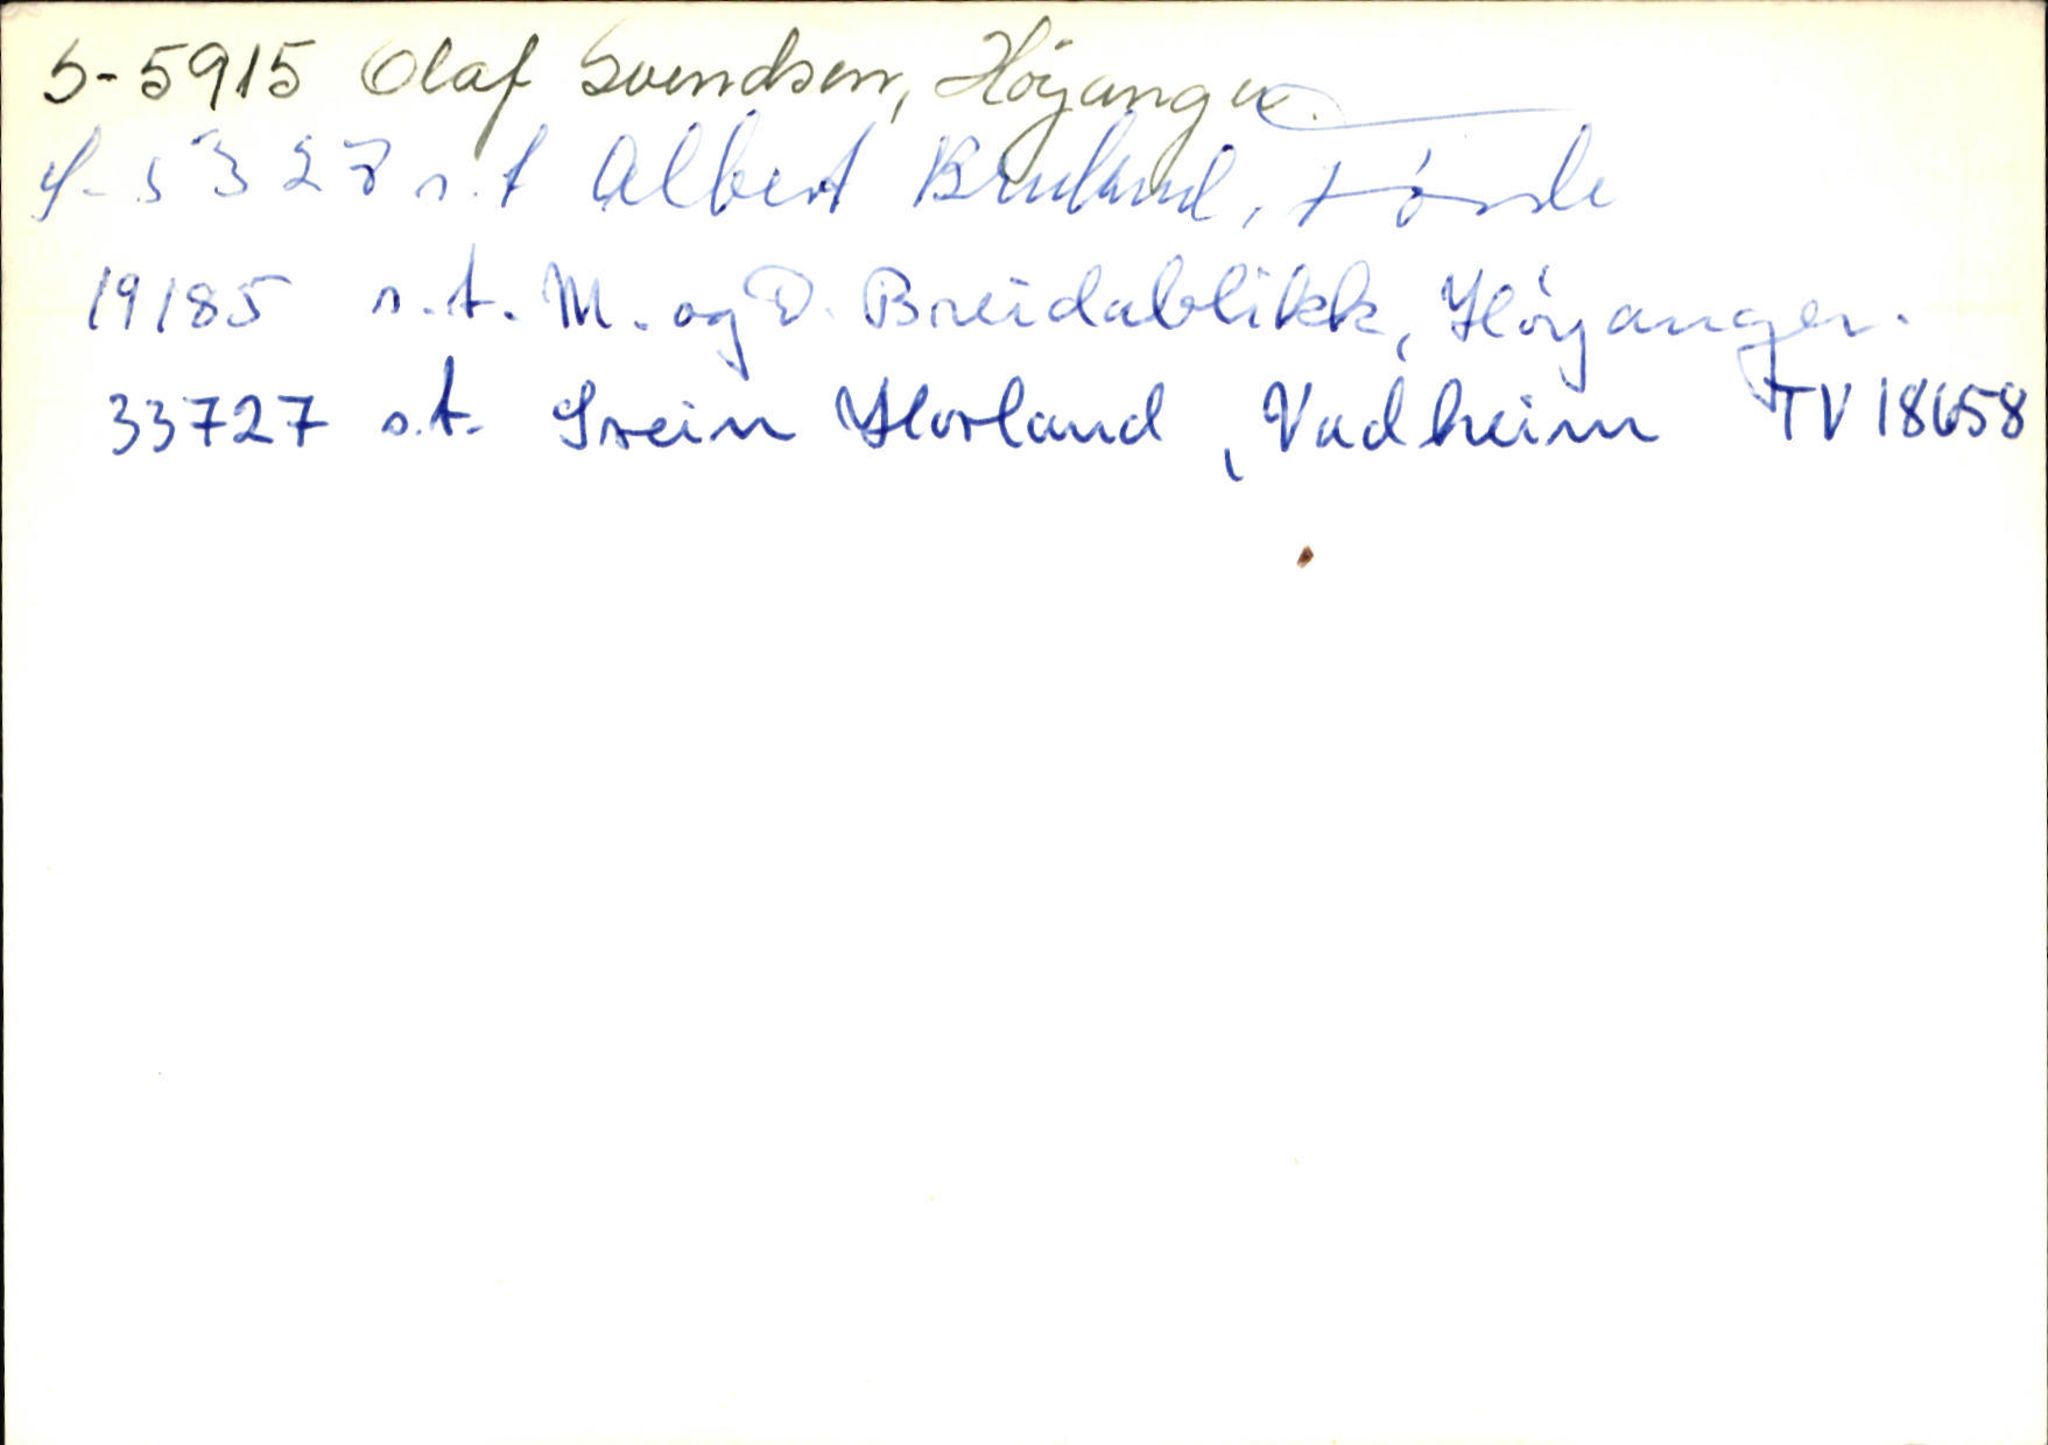 S-5915 Olaf Svendsen, Höyanger.
S-5327 s.t Albert Bruland, Førde
19185 s.t. M. og D. Breidablikk, Höyanger.
33727 s.t. Svein Horland, Vadheim TV18658